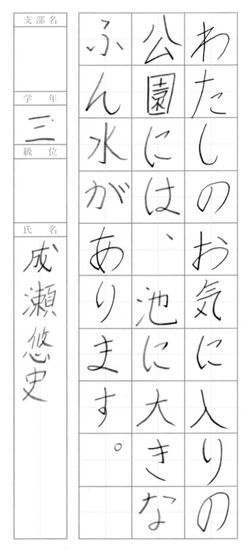 わたしのお気に入りの
公園には、池に大きな
ふん水があります。
支部名
学年
三
級位
氏名
成瀬悠史